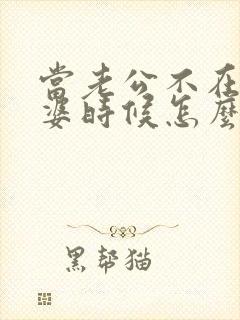 當老公不在
婆時候怎麼
黑幫猫